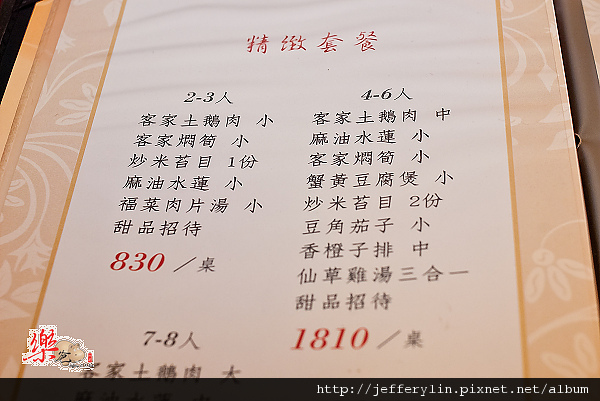 精緻套餐
2-3人
客家土鵝肉 小
客家燜筍 小
炒米苔目 1份
麻油水蓮 小
福菜肉片湯 小
甜品招待
830 ／桌
4-6人
客家土鵝肉 中
麻油水蓮 小
客家燜筍 小
蟹黃豆腐煲 小
炒米苔目 2份
豆角茄子 小
香橙子排 中
仙草雞湯三合一
甜品招待
1810 ／桌
7-8人
客家土鵝肉 大
麻油水蓮
樂
http://jefferylin.pixnet.net/album